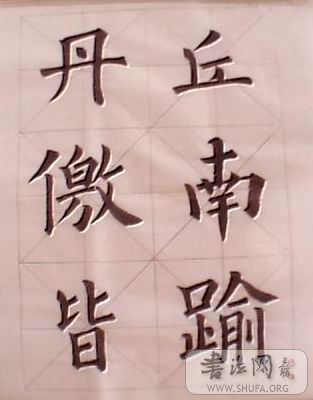 丘南踰
丹儌皆
書法网
WWW.SHUFA.ORG